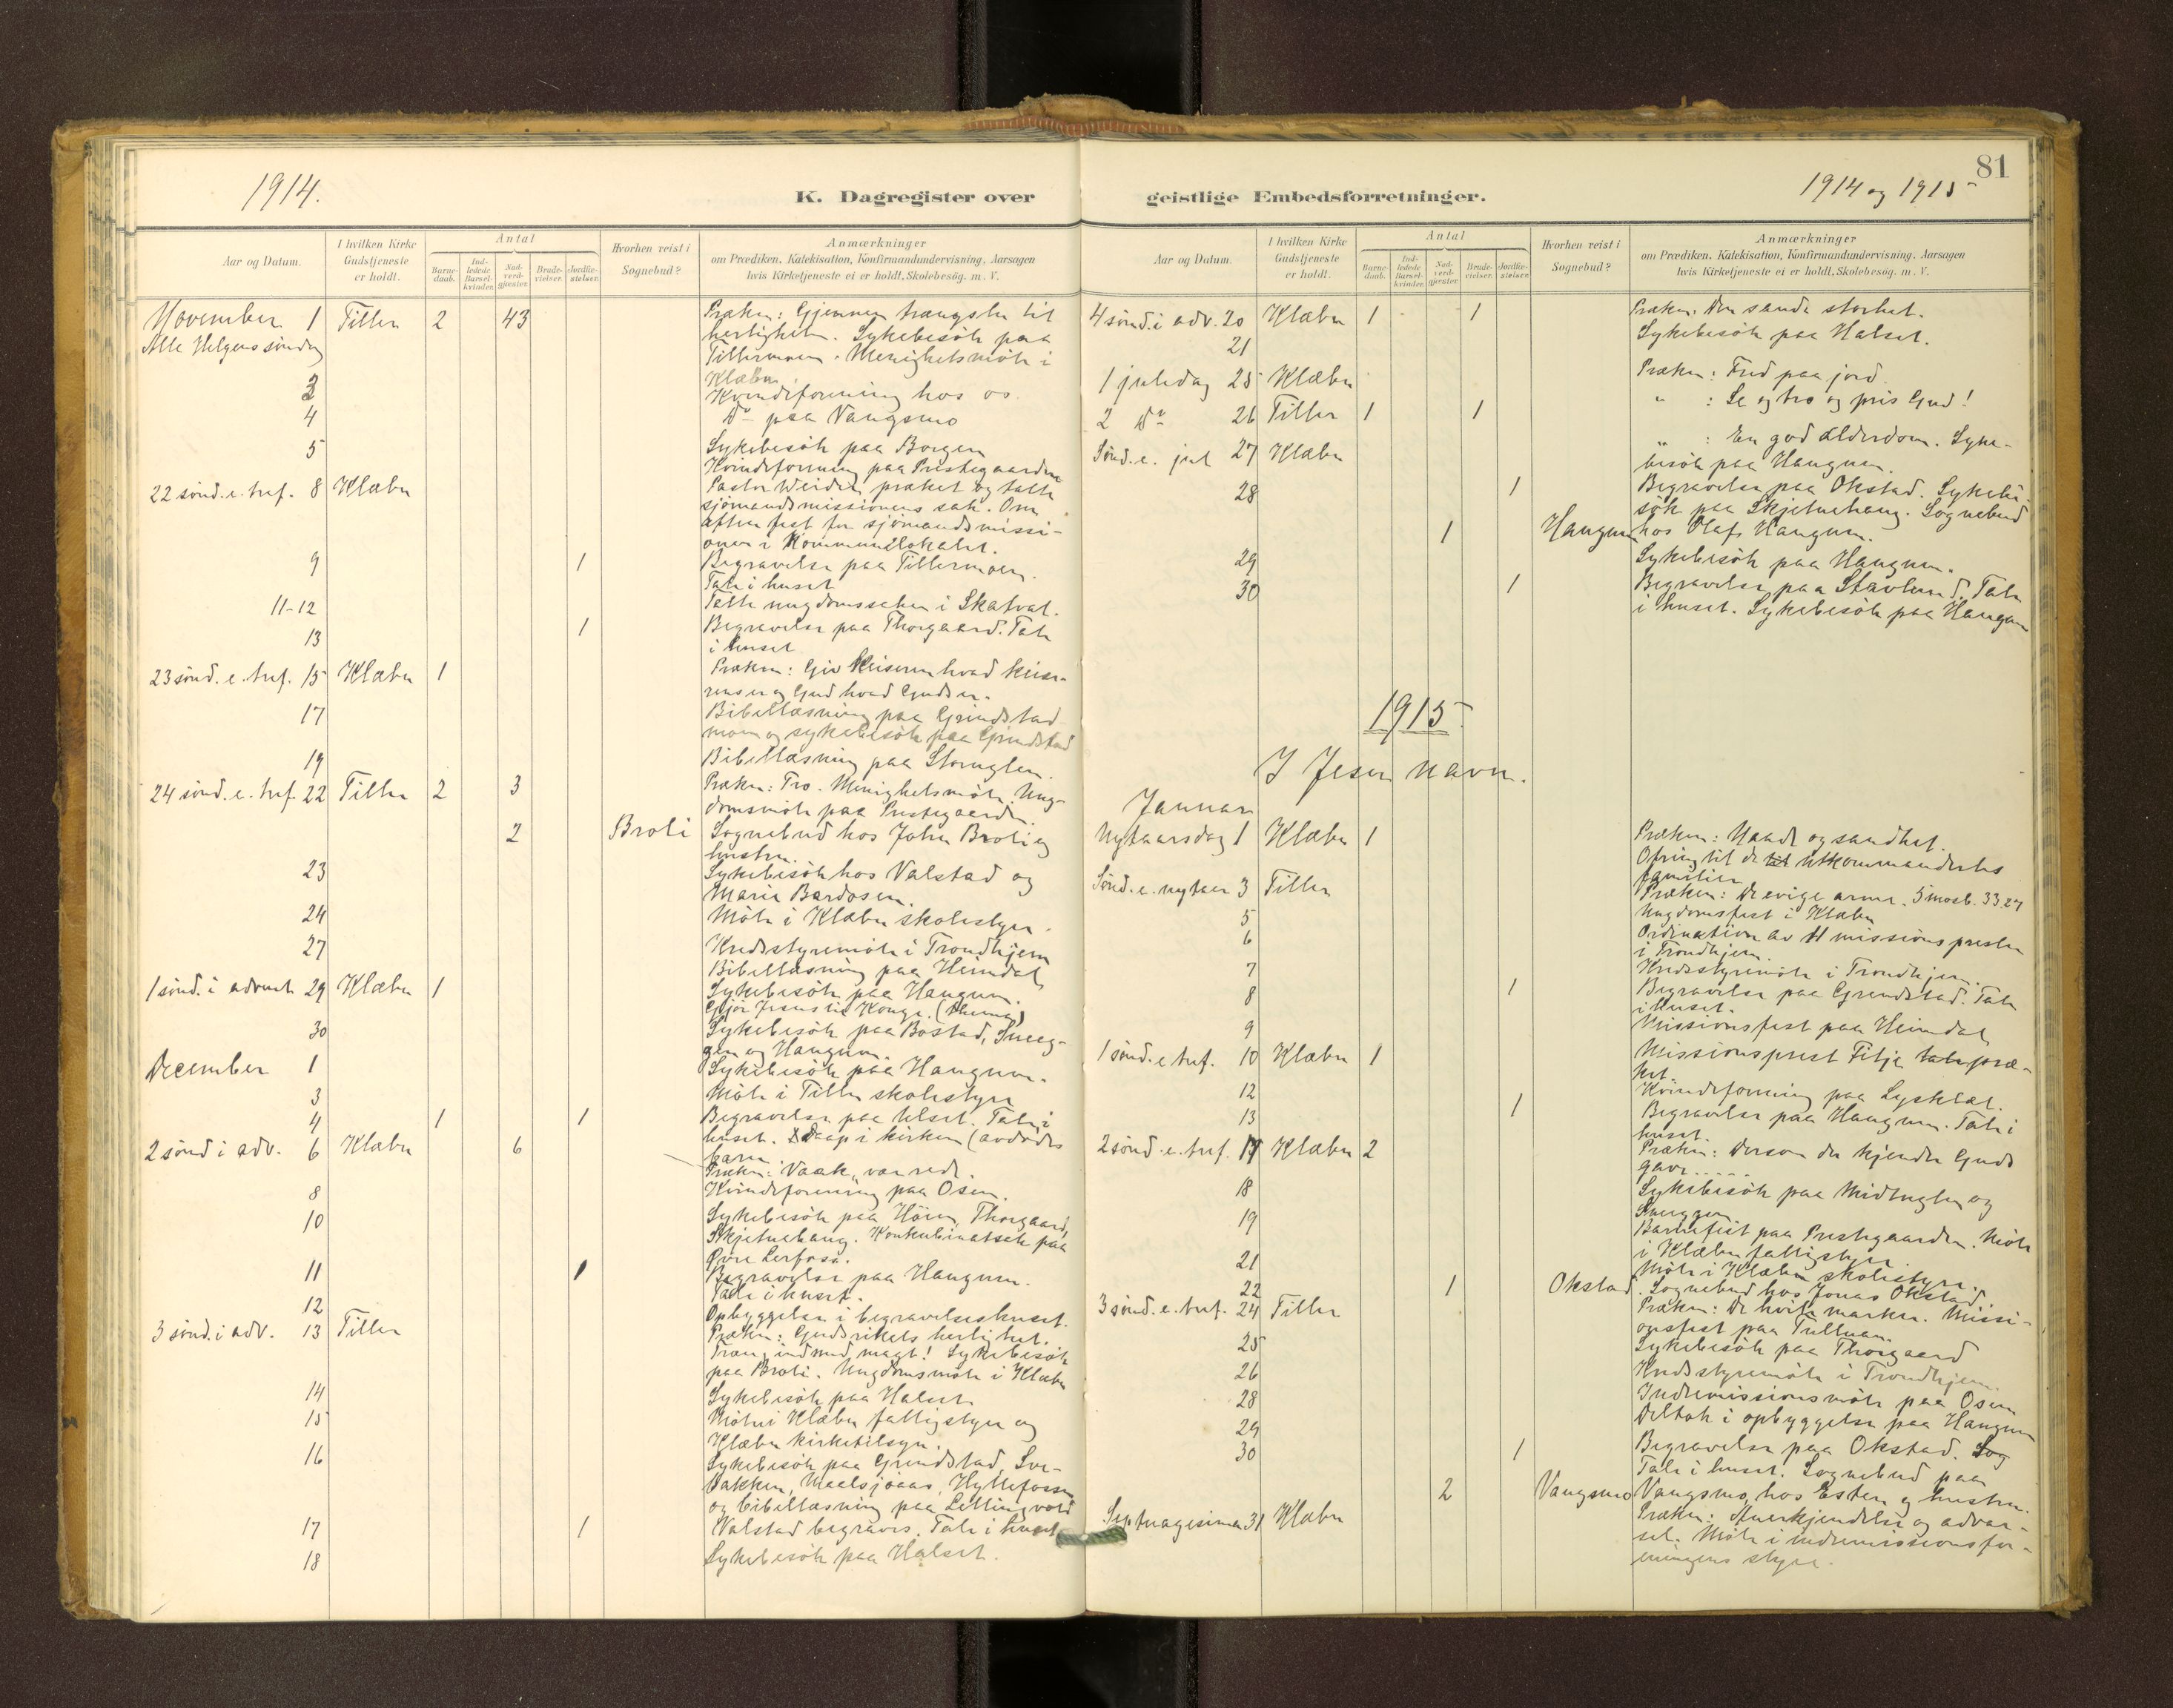 1914.
K. Dagregister over
Aar og Datum.
I hvilken Kirke Gudstjeneste er holdt.
Antal
Barne-daab.
Ind-ledede Barsel-kvinder.
Nad-verd-gjæster.
Brude-vielser.
Jordfæ-stelser.
Hvorhen reist i Sognebud?
Anmærkninger
om Prædiken, Katekisation, Konfirmandundervisning, Aarsagen
hvis Kirketjeneste ei er holdt, Skolebesøg. m. V.
November 1 Tiller 2 43 Præken: Gjennem trængsler til
Alle Helgens søndag herligheten. Sykebesøk paa
Tillermoen. Menighetsmøte i
Klæbu
3 Kvindeforening hos os.
4 Do paa Vangsmo
5 Sykebesøk paa Borgen
Kvindeforening paa Prestegaarden
22 sønd. e. tref. 8 Klæbu Pastor Weidel præket og talte
sjømandsmissionens sak. Om
aften fest for sjømandsmissi-
onen i Kommunelokalet.
9 1 Begravelse paa Tillermoen.
Tale i huset
11-12 Talte ungdomssaken i Skatval.
13 1 Begravelse paa Thorgaard. Tale
i huset
23 sønd. e. tref. 15 Klæbu 1 Præken: Giv keiseren hvad keise-
rens er og Gud hvad Guds er.
17 Bibellæsning paa Grindstad
moen og sykebesøk paa Grindstad
19 Bibellæsning paa Storuglen.
24 sønd. e. tref. 22 Tiller 2 3 Præken: Tro. Menighetsmøte. Ung-
domsmøte paa Prestegaarden.
2 Broti Sognebud hos John Broti og
hustru.
23 Sykebesøk hos Valstad og
Marie Bardosen.
24 Møte i Klæbu skolestyre.
27 Kredsstyremøte i Trondhjem
Bibellæsning paa Heimdal
1 sønd. i advent 29 Klæbu 1 Sykebesøk paa Haugum.
Gjør Jesus til Konge. (thema)
30 Sykebesøk paa Bostad, Sneeg-
gen og Haugum.
December 1 Sykebesøk paa Haugum.
3 Møte i Tiller skolestyre
4 1 1 Begravelse paa Ulset. Tale i
huset. Daap i kirken (avdødes
barn
2 sønd i adv. 6 Klæbu 6 Præken: Vaak, vær rede.
8 Kvindeforening paa Osen.
10 Sykebesøk paa Höien, Thorgaard,
Skjetnehaug. Konkubinatsak paa
Øvre Lerfoss.
11 1 Begravelse paa Haugum.
Tale i huset.
12 Opbyggelse i begravelseshuset.
3 sønd. i adv. 13 Tiller Præken: Gudsrikets herlighet.
Træng ind med magt! Sykebesøk
paa Broti. Ungdomsmøte i Klæbu
14 Sykebesøk paa Halset
15 Møte i Klæbu fattigstyre og
Klæbu kirketilsyn.
16 Sykebesøk paa Grindstad, Sve-
bakken, Maelsjøaas, Hyttefossen
og bibellæsning paa Lettingvold
17 1 Valstad begraves. Tale i huset
18 Sykebesøk paa Halset.
81
1914 og 1915
geistlige Embedsforretninger.
Aar og Datum.
I hvilken Kirke Gudstjeneste er holdt.
Antal
Barne-daab.
Ind-ledede Barsel-kvinder.
Nad-verd-gjæster.
Brude-vielser.
Jordfæ-stelser.
Hvorhen reist i Sognebud?
Anmærkninger
om Prædiken, Katekisation, Konfirmandundervisning, Aarsagen
hvis Kirketjeneste ei er holdt, Skolebesøg. m. V.
4 sønd. i adv. 20 Klæbu 1 1 Præken: Den sande storhet.
21 Sykebesøk paa Halset.
1 juledag 25 Klæbu Præken: Fred paa jord
2 Do 26 Tiller 1 1 " : Se og tro og pris Gud!
Sønd. e. jul 27 Klæbu " : En god alderdom. Syke-
besøk paa Haugum.
28 1 Begravelse paa Okstad. Sykebe-
søk paa Skjetnehaug. Sognebud
1 Haugum hos Olaf Haugum.
29 Sykebesøk paa Haugum.
30 1 Begravelse paa Stavlund. Tale
i huset. Sykebesøk paa Haugum
1915
I Jesu navn.
Januar
Nytaarsdag 1 Klæbu 1 Præken: Naade og sandhet.
Ofring til de til utkommanderts
familier
Sønd. e. nytaar 3 Tiller Præken: De evige arme. 5 moseb. 33.27
5 Ungdomsfest i Klæbu
6 Ordination av 11 missionsprester
i Trondhjem.
7 Kredsstyremøte i Trondhjem.
8 1 Begravelse paa Grendstad. Tale
i huset.
9 Missionsfest paa Heimdal
1 sønd. e. tref. 10 Klæbu 1 Missionsprest Filje tale præ-
ket.
12 Kvindeforening paa Lysklæt.
13 1 Begravelse paa Haugum. Tale i
huset.
2 sønd. e. tref. 17 Klæbu 2 Præken: Dersom du kjendte Guds
gave.....
18 Sykebesøk paa Miduglen og
Sneggen
19 Barnefest paa Prestegaarden. Møte
i Klæbu fattigstyre
21 Møte i Klæbu skolestyre.
22 1 Okstad. Sognebud hos Jonas Okstad.
3 sønd. e. tref. 24 Tiller Præken: De hvite marker. Missi-
onsfest paa Tulluan.
25 Sykebesøk paa Thorgaard
26 Kredsstyremøte i Trondhjem.
28 Indremissionsmøte paa Osen
29 Deltok i opbyggelse paa Haugum
30 1 Begravelse paa Okstad. Sog
Tale i huset. Sognebud paa
2 Vangsmo Vangsmo, hos Esten og hustru.
Septuagesima 31 Klæbu Præken: Anerkjendelse og advar-
sel. Møte i indremissionsfor-
eningens styre.